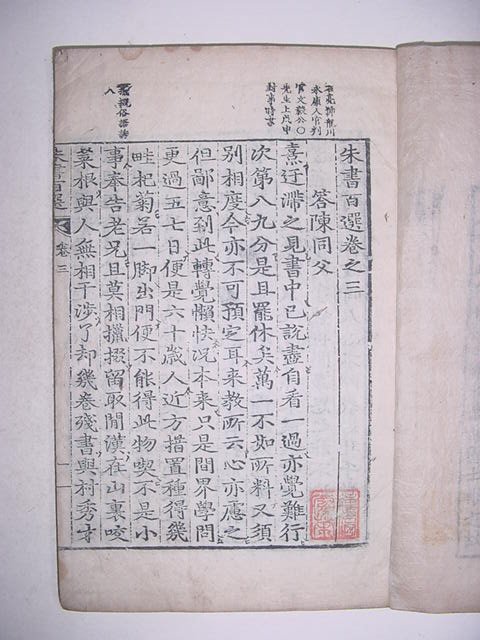 朱書百選卷之三
答陳同父
熹迂滯之見書中已說盡自看一過亦覺難行
次第八九分是且罷休矣萬一不如所料又須
別相度今亦不可預定耳來教所云心亦應之
但鄙意到此轉覺懶怏況本來只是間界學問
更過五七日便是六十歲人近方措置種得幾
畦杞菊若一脚出門便不能得此物喫不是小
事奉告老兄且莫相攛掇留取閒漢在山裏咬
菜根與人無相干涉了却幾卷殘書與村秀才
朱書百選
卷三
川
永康人官判
官文毅公〇
先生上戊申
封事時書